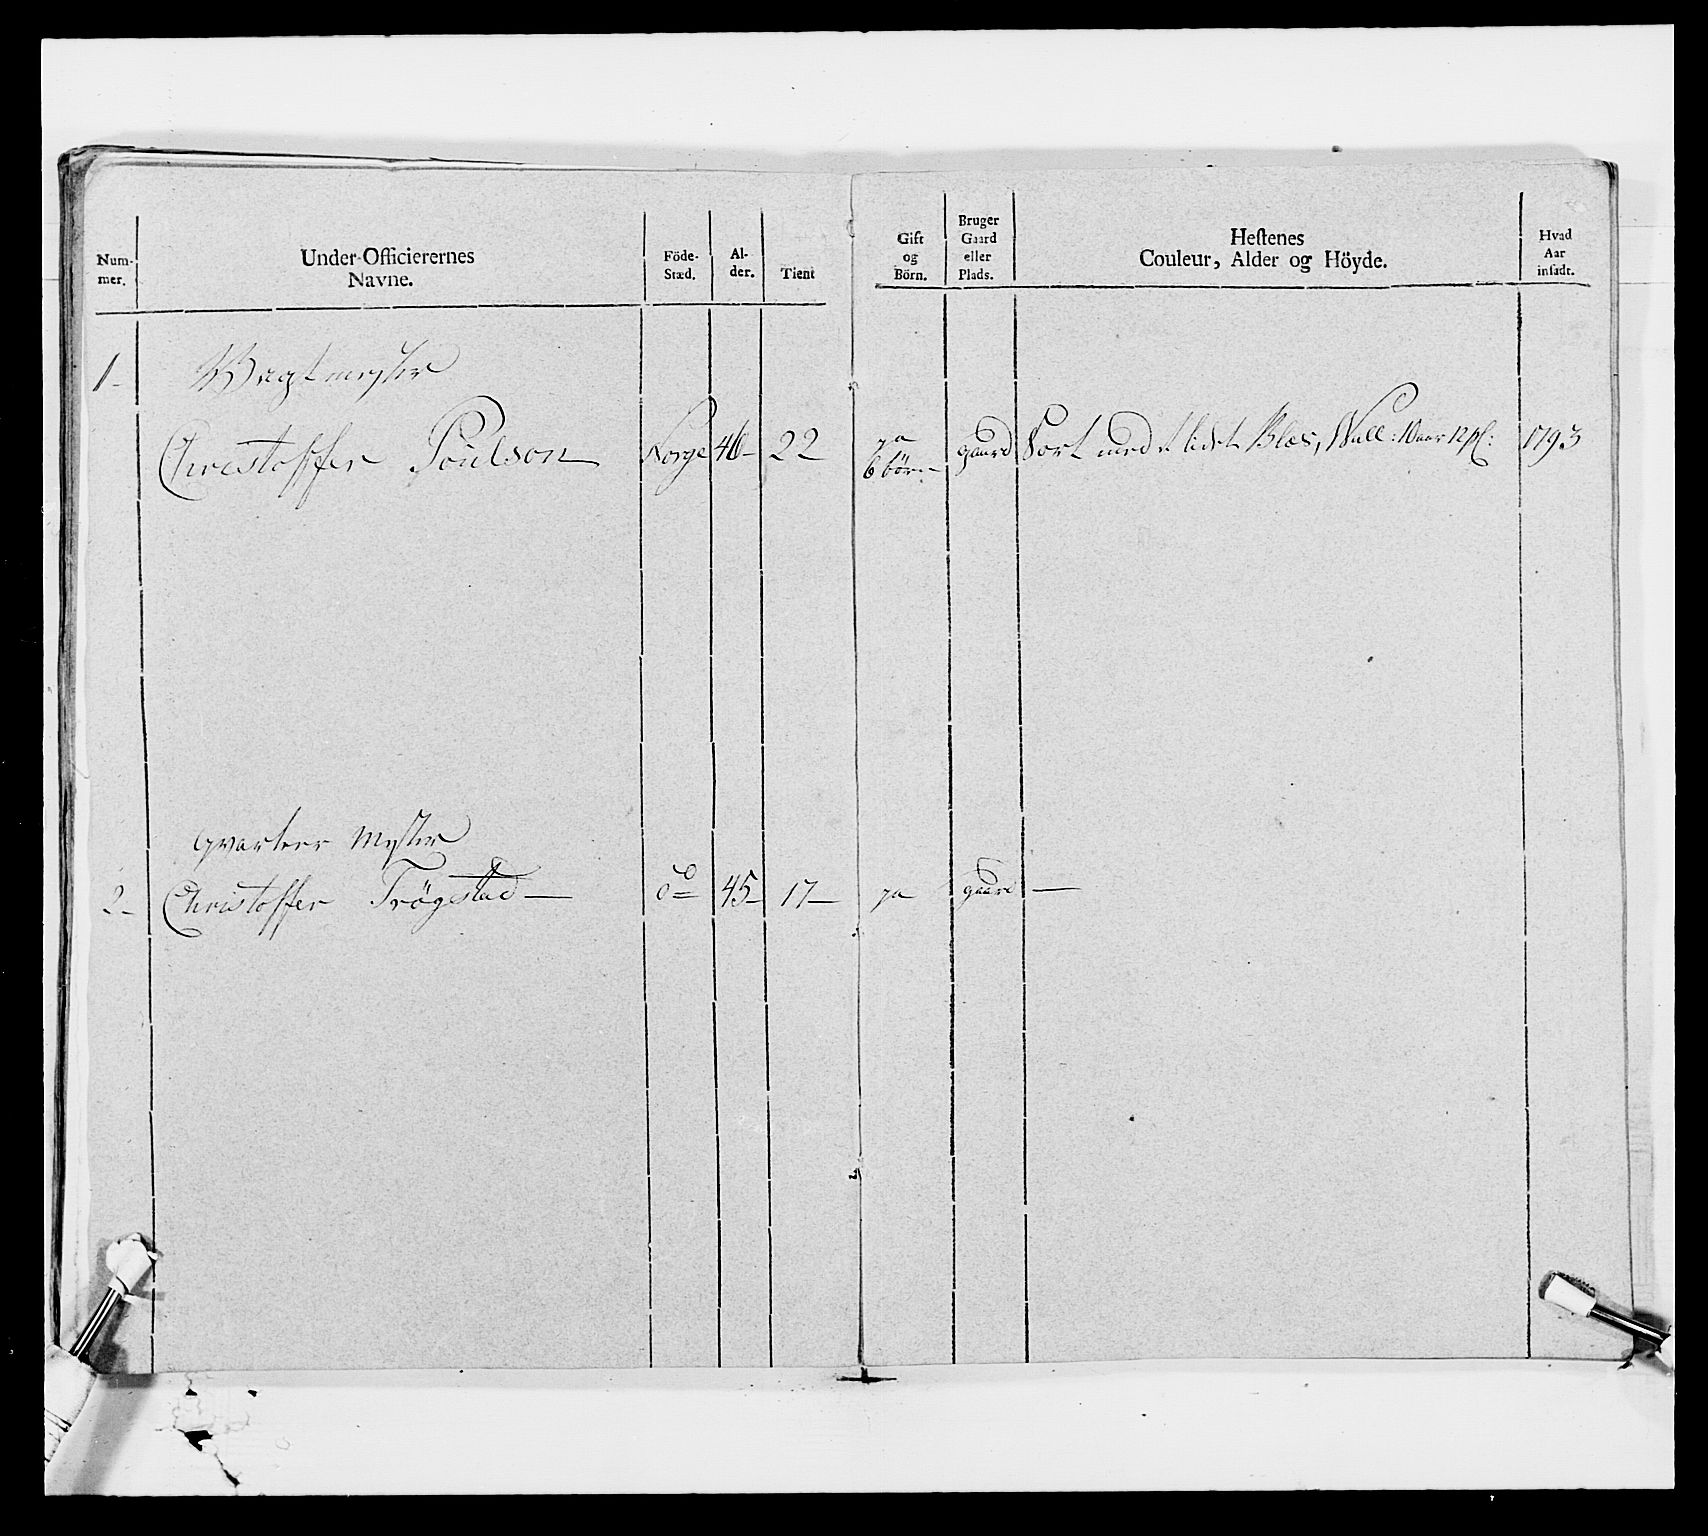 Num-
mer.
Under-Officierernes
Navne.
Föde-
Stæd.
Al-
der.
Tient
Gift
og
Börn.
Bruger
Gaard
eller
Plads.
Hestenes
Couleur, Alder og Höyde.
Hvad
Aar
insadt.
1- Vagtmester
Christoffer Poulson Norge 46- 22 ja gaard Sort med et lidet Blæs, Wall: 10 aar 12 1793
6 börn
qvarteer Mester
2- Christoffer Trögstad do 45- 17- ja gaard